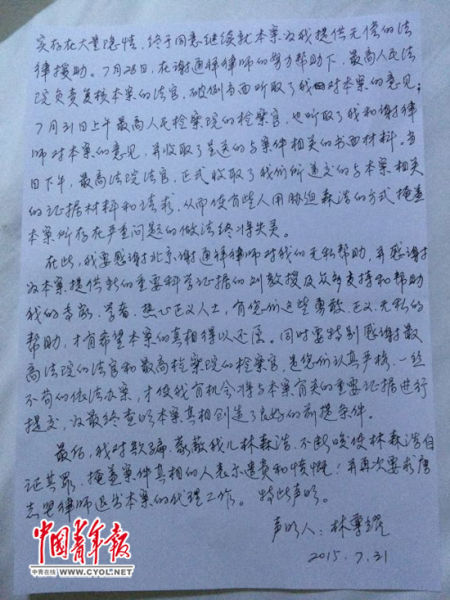 实存在大量隐情，终于同意继续就本案为我提供无偿的法
律援助。7月28日，在谢通祥律师的努力帮助下，最高人民法
院负责复核本案的法官，破例书面听取了我对本案的意见；
7月31日上午最高人民检察院的检察官，也听取了我和谢律
师对本案的意见，并收取了呈送的与案件相关的书面材料。当
日下午，最高法院法官，正式收取了我们所递交的与本案相关
的证据材料和请求，从而使有些人用胁迫森浩的方式掩盖
本案所存在严重问题的做法终将失灵。
在此，我要感谢北京谢通祥律师对我的无私帮助，并感谢
为本案提供新的重要科学证据的刘教授及众多支持和帮助
我的专家、学者、热心正义人士，有您们这些勇敢、正义、无私的
帮助，才有希望本案的真相得以还原。同时要特别感谢最
高法院的法官和最高检察院的检察官，是您们认真严格、一丝
不苟的依法办案，才使我有机会将与本案有关的重要证据进行
提交，为最终查明本案真相创造了良好的前提条件。
最后，我对欺骗、蒙蔽我儿林森浩、不断唆使林森浩自
证其罪、掩盖案件真相的人表示遗责和愤慨！并再次要求唐
志坚律师退出本案的代理工作。特此声明。
声明人：林尊耀
2015.7.31
中国青年报
中青在线 WWW.CYOL.NET